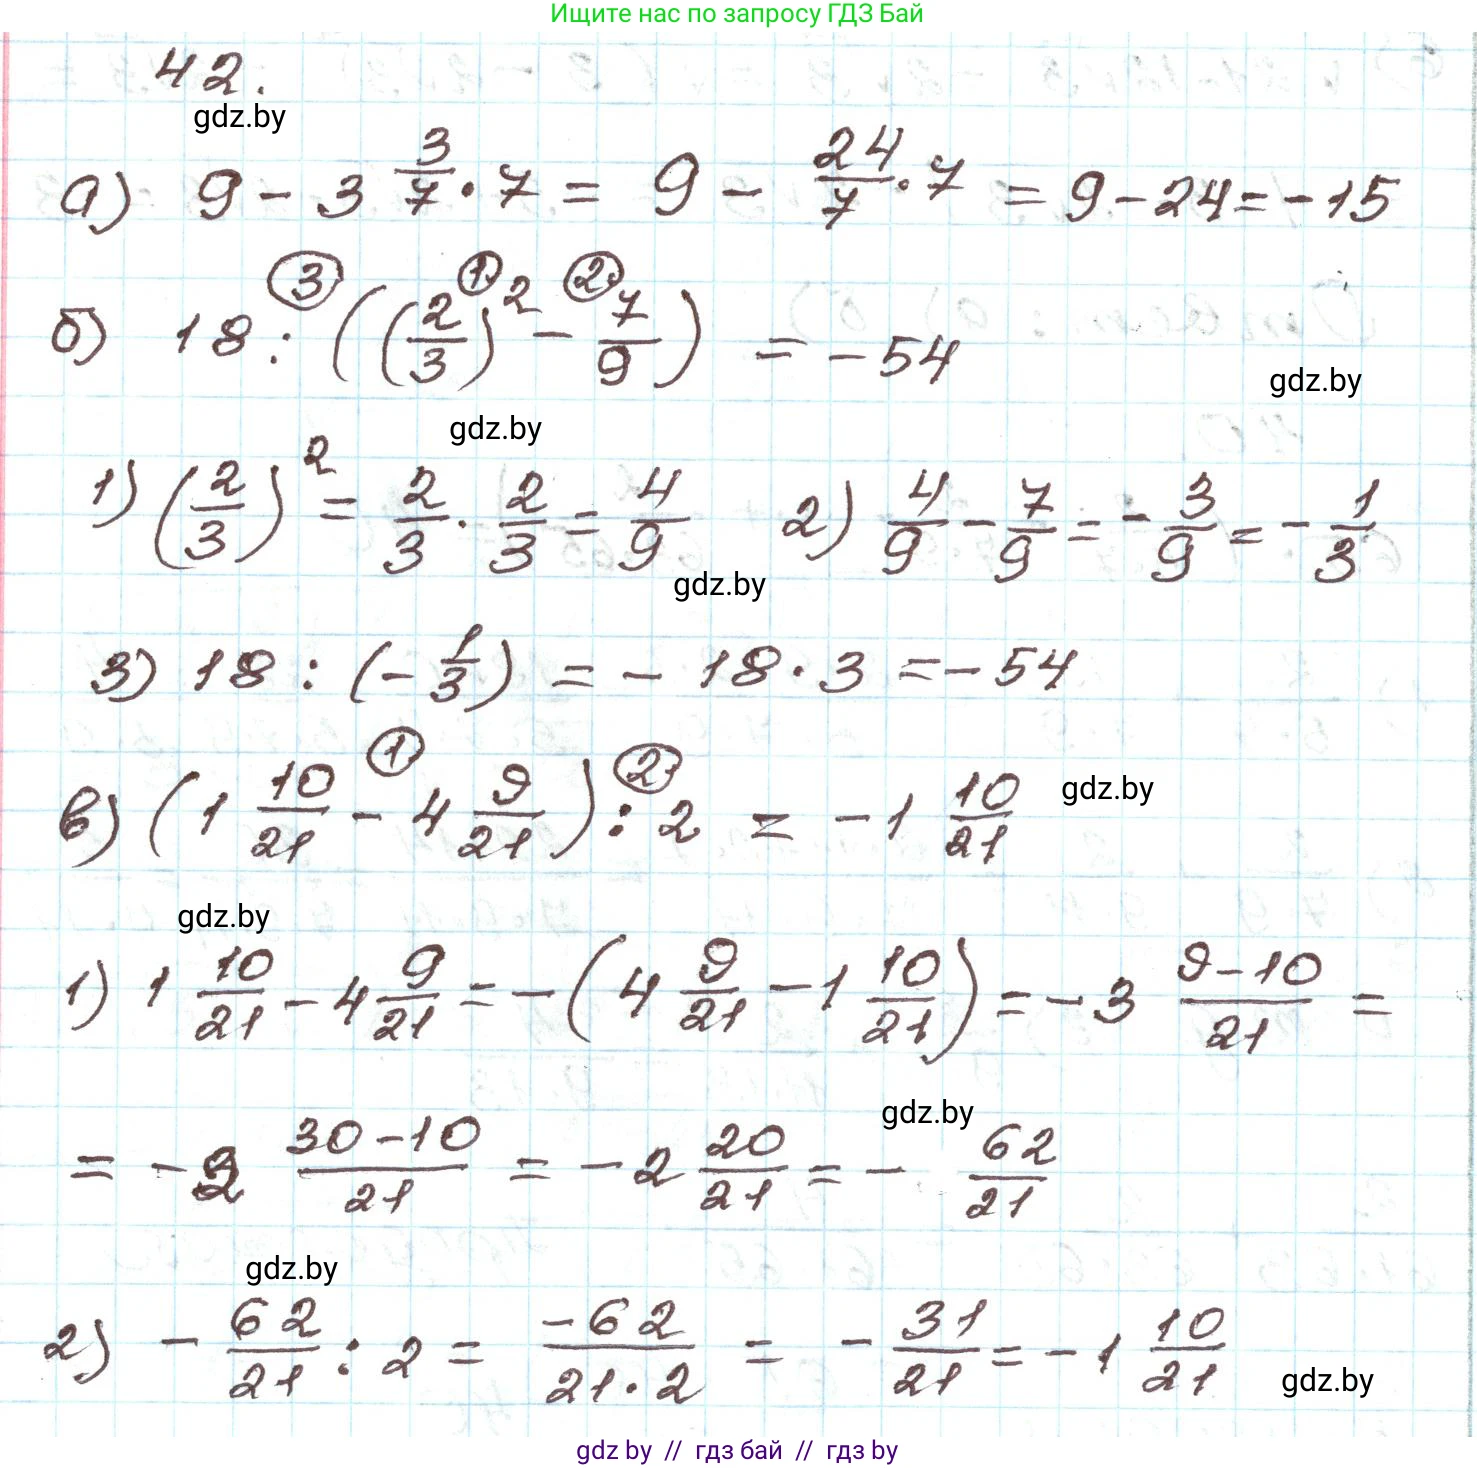 Ищите нас по запросу ГДЗ Бай
42.
gdz.by
а) 9 - 3 3/7 · 7 = 9 - 24/7 · 7 = 9 - 24 = -15
③ ① ②
б) 18 : ((2/3)² - 7/9) = -54
gdz.by
gdz.by
1) (2/3)² = 2/3 · 2/3 = 4/9 2) 4/9 - 7/9 = - 3/9 = - 1/3
gdz.by
3) 18 : (- 1/3) = - 18 · 3 = - 54
① ②
в) (1 10/21 - 4 9/21) : 2 = - 1 10/21
gdz.by
gdz.by
1) 1 10/21 - 4 9/21 = - (4 9/21 - 1 10/21) = - 3 9-10/21 =
gdz.by
= - 2 30-10/21 = - 2 20/21 = - 62/21
gdz.by
2) - 62/21 : 2 = -62/21·2 = - 31/21 = - 1 10/21
gdz.by
gdz by // гдз бай // гдз by